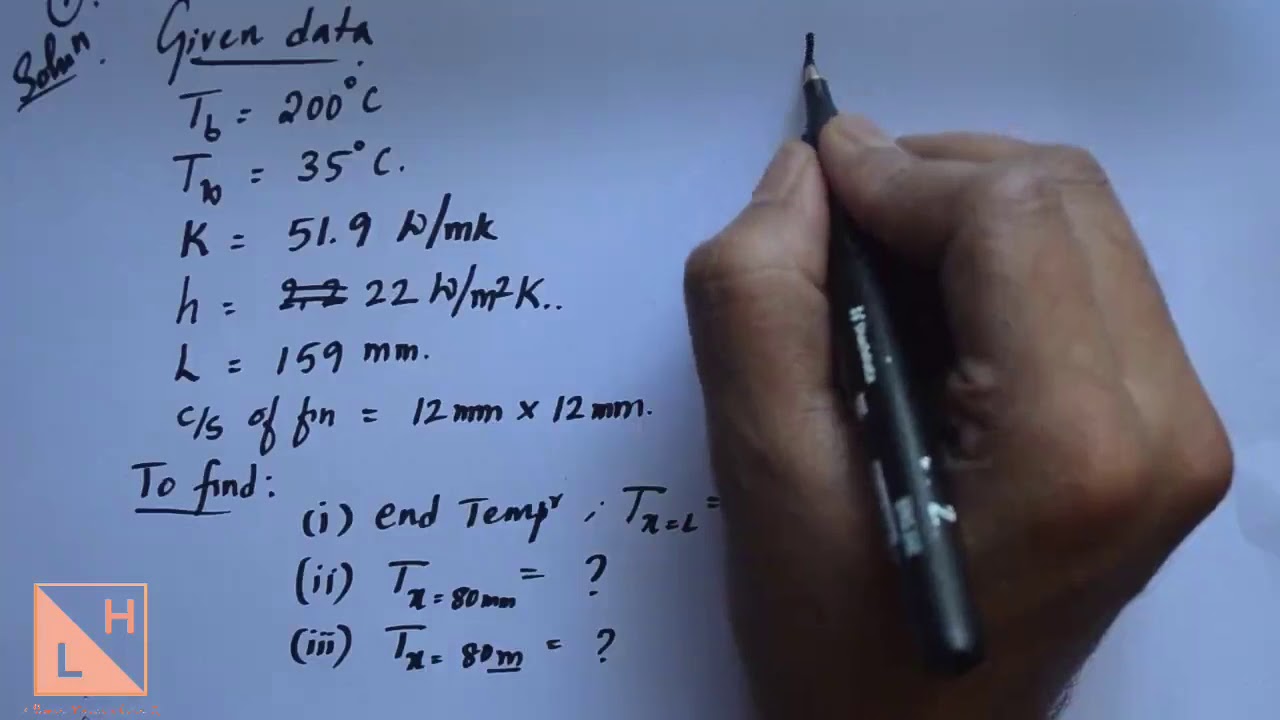 Soluⁿ.
Given data
T_b = 200°C
T_∞ = 35°C.
K = 51.9 W/mk
h = 2.2 22 W/m²K..
L = 159 mm.
c/s of fin = 12mm x 12mm.
To find:
(i) end Tempʳ ; T_x=L =
(ii) T_x=80mm = ?
(iii) T_x=80m = ?
H
L